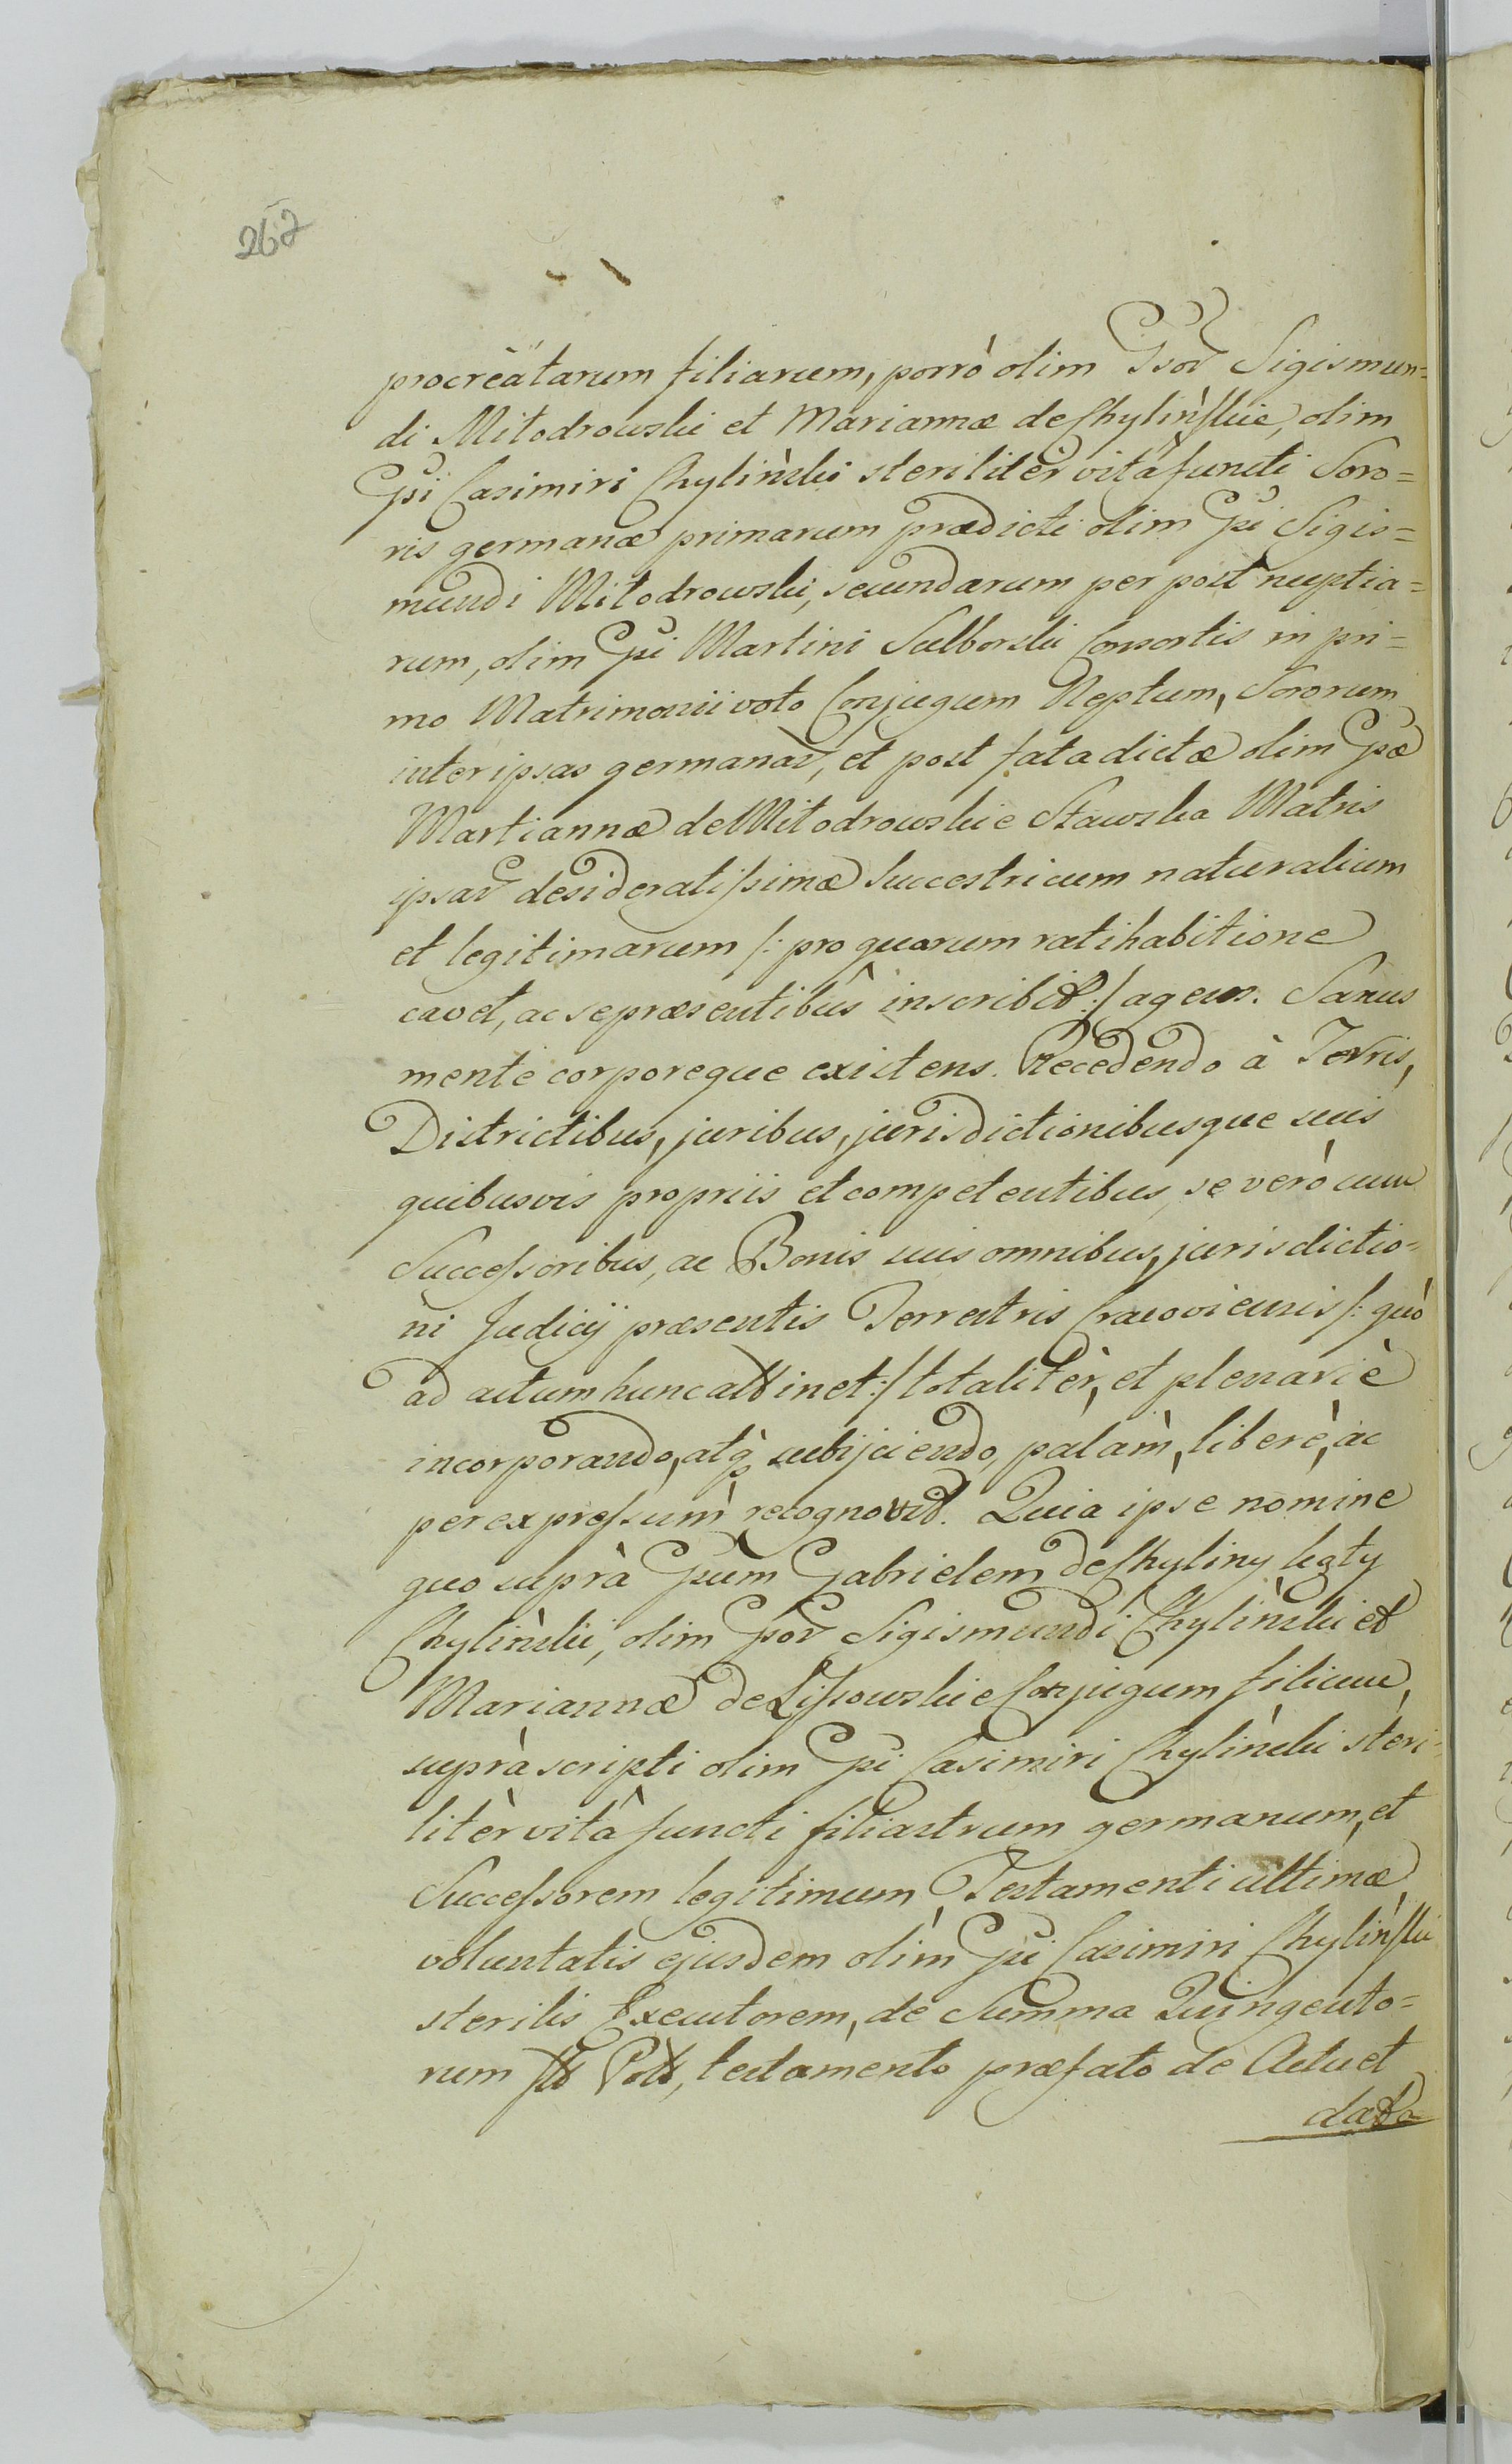 262
procreatarum filiarum, porrò olim Gsor Sigismun=
di Mitodrowski et Mariannæ de Chylińskie, olim
Gsi Casimiri Chyliński sterilitèr vitâ functi Soro=
ris germanæ primarum prædicti olim Gsi Sigis=
mundi Mitodrowski, secundarum per post nuptia=
rum, olim Gsi Martini Sulborski Consortis in pri=
mo Matrimonii voto Conjugum Neptum, Sororum
inter ipsas germanar, et post fata dictæ olim Gsæ
Martiannæ de Mitodrowskie Stawska Matris
ipsar desideratissimæ Succestricum naturalium
et legitimarum /: pro quarum ratihabitione
cavet, ac se præsentibus inscribit :/ agens. Sanus
mente corporeque existens. Recedendo à Terris,
Districtibus, juribus, jurisdictionibusque suis
quibusvis propriis et competentibus, se verò cum
Successoribus, ac Bonis suis omnibus, jurisdictio=
ni Judicij præsentis Terrestris Cracoviensis /: quò
ad actum hunc attinet :/ totalitèr, et plenariè
incorporando, atq̀ subijciendo, palàm, liberè, ac
per expressum recognovit. Quia ipse nomine
quo suprà Gsum Gabrielem de Chyliny
Chyliński, olim Gsor Sigismundi Chyliński et
Mariannæ de Lissowskie Conjugum filium,
supràscripti olim Gsi Casimiri Chyliński steri=
litèr vitâ functi filiastrum germanum, et
Successorem legitimum, Testamenti ultimæ
voluntatis ejusdem olim Gsi Casimiri Chyliński
sterilis Executorem, de Summa Quingento=
rum testamento præfato de Actu et
data